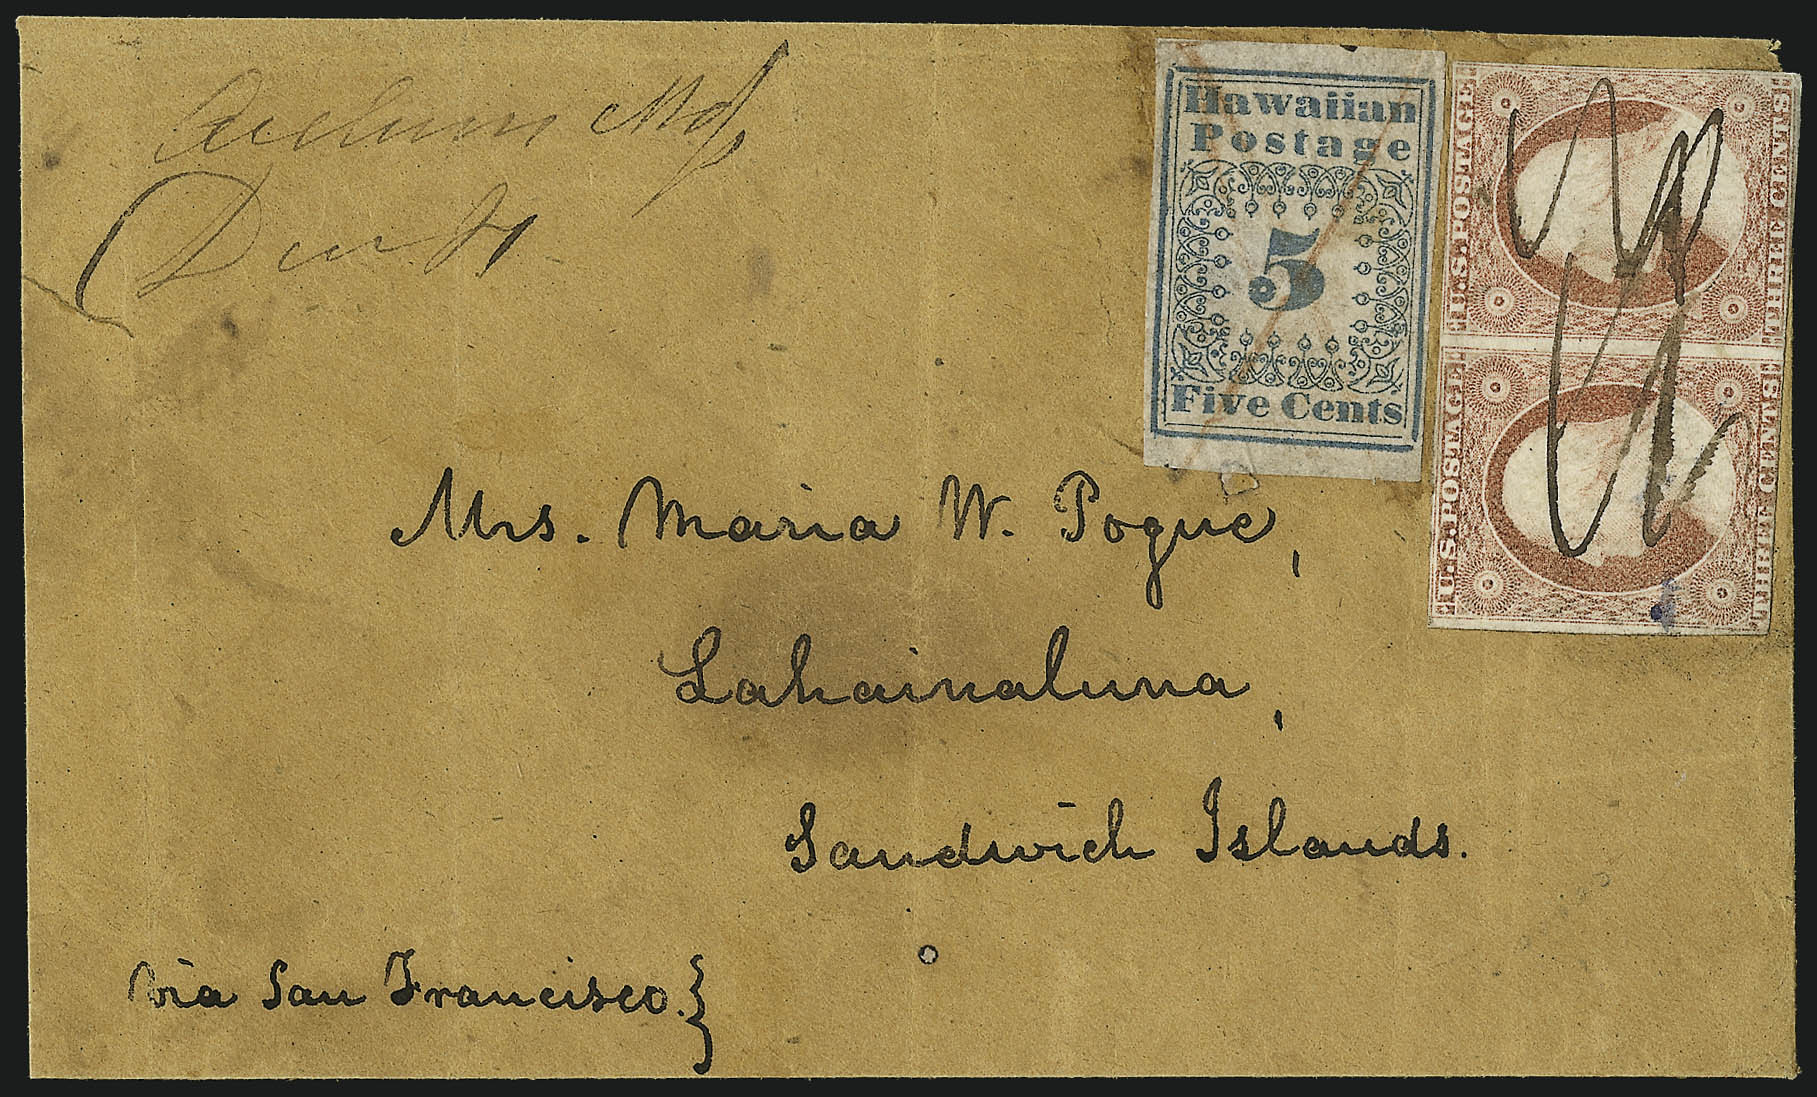 Hawaiian
Postage
5
Five Cents
U.S. POSTAGE
THREE CENTS
U.S. POSTAGE
THREE CENTS
Mrs. Maria W. Pogue,
Lahainaluna,
Sandwich Islands.
via San Francisco.